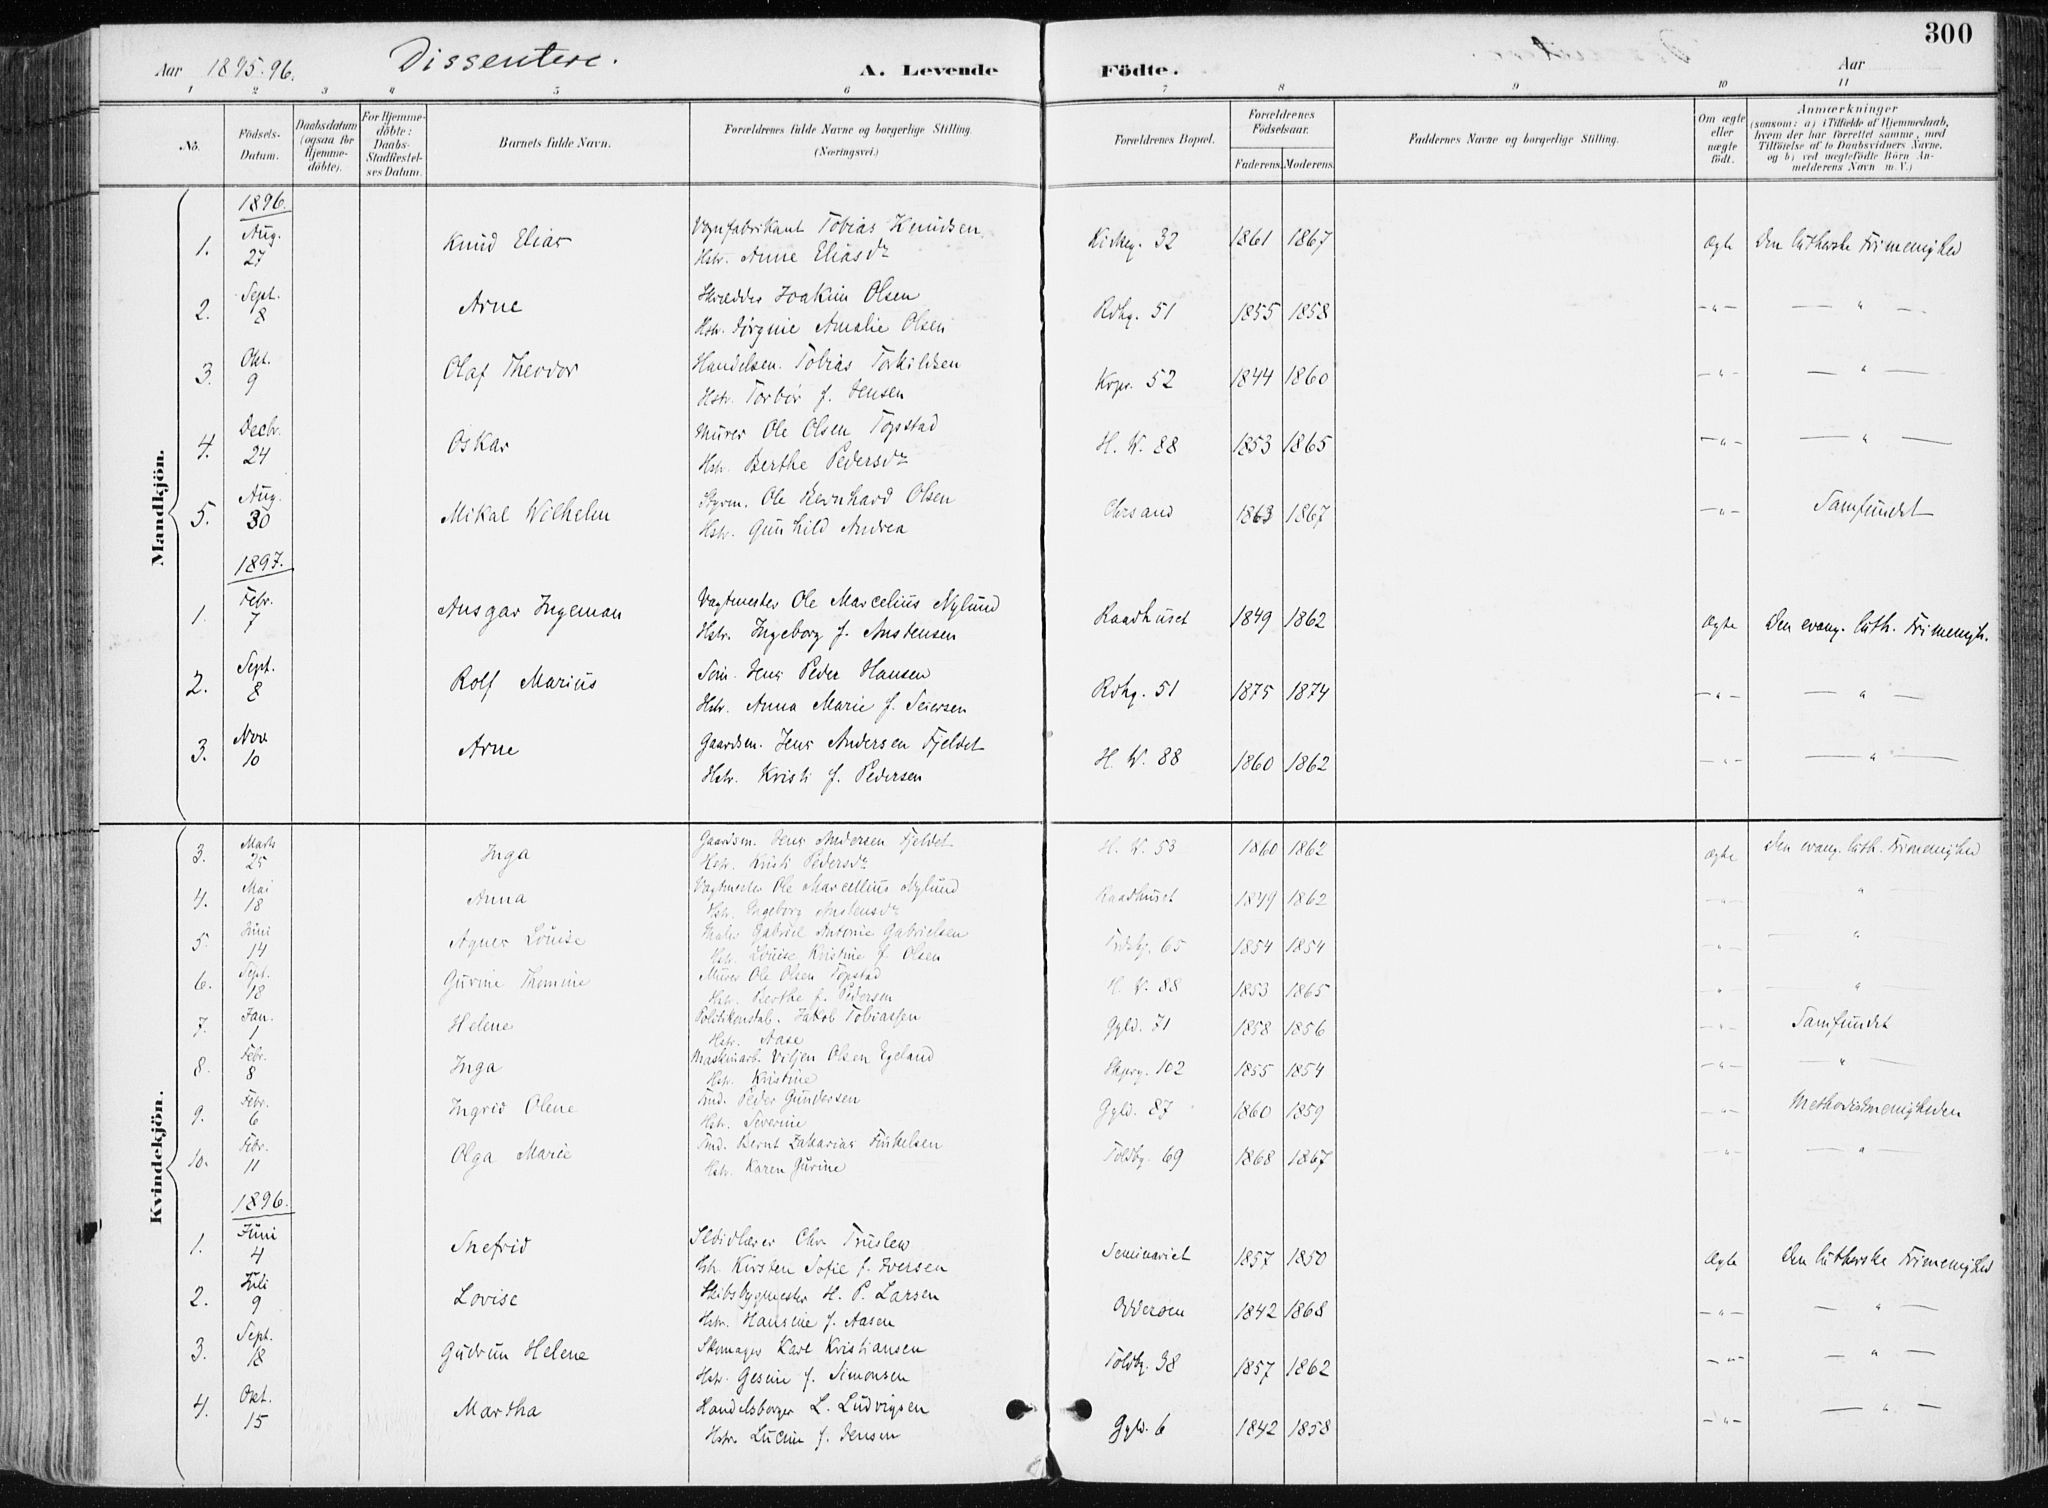 300
Aar 1895.96. Dissentere. A. Levende Födte. Aar
1 2 3 4 5 6 7 8 9 10 11
No. Födsels-Datum. Daabsdatum (ogsaa for Hjemme-döbte). For Hjemme-döbte: Daabs-Stadfæstel-ses Datum. Barnets fulde Navn. Forældrenes fulde Navne og borgerlige Stilling. (Næringsvei.) Forældrenes Bopæl. Forældrenes Födselsaar. Faderens. Moderens. Faddernes Navne og borgerlige Stilling. Om ægte eller uægte födt. Anmærkninger (saasom: a) i Tilfælde af Hjemmedaab, hvem der har forrettet samme, med Tilföielse af to Daabsvidners Navne, og b) ved uægtefödte Börn An-melderens Navn m. V.)
Mandkjön.
1896.
1. Aug. 27 Knud Elias Vognfabrikant Tobias Knudsen Kirkeg. 32 1861 1867 Ægte Den lutherske Frimenighed
Hstr. Anne Eliasdr
2. Sept. 8 Arne Skrædder Joakim Olsen Rdhg. 51 1855 1858 — " — — " —
Hstr. Jörgine Amalie Olsen
3. Okt. 9 Olaf Theodor Handelsm. Tobias Torkildsen Krpr. 52 1844 1860 — " — — " —
Hstr. Torbör f. Jensen
4. Decbr. 24 Oskar Murer Ole Olsen Topstad H. W. 88 1853 1865 — " — — " —
Hstr. Berthe Pedersdr
5. Aug. 30 Mikal Wilhelm Styrm. Ole Bernhard Olsen Chrsand 1863 1867 — " — Samfundet
Hstr. Gunhild Andrea
1897.
1. Febr. 7 Ansgar Ingeman Vagtmester Ole Marcelius Nylund Raadhuset 1849 1862 Ægte Den evang. luth. Frimenigh.
Hstr. Ingeborg f. Anstensen
2. Sept. 8 Rolf Marius Söm. Jens Peder Hansen Rdhg. 51 1875 1874 — " — — " —
Hstr. Anna Marie f. Seiersen
3. Nov 10 Arne Gaardsm. Jens Andersen Fjeldet H. W. 88 1860 1862 — " — — " —
Hstr. Kristi f. Pedersen
Kvindekjön.
3. Marts 25 Inga Gaardsm. Jens Andersen Fjeldet H. W. 53 1860 1862 Ægte Den evang. luth. Frimenighed
Hstr. Kristi Pedersdr
4. Mai 18 Anna Vagtmester Ole Marcellius Nylund Raadhuset 1849 1862 — " — "
Hstr. Ingeborg Anstensdr
5. Juni 14 Agnes Lovise Maler Gabriel Antonie Gabrielsen 65 1854 1854 — " — — " —
Hstr. Louise Kristine f. Olsen
6. Sept. 18 Gurine Thomine Murer Ole Olsen Topstad H. W. 88 1853 1865 " — " —
Hstr. Berthe f. Pedersen
7. Jan. 1 Helene Politikonstab. Jakob Tobiassen Ggld. 71 1858 1856 — " — Samfundet
Hstr. Aase
8. Febr. 8 Inga Maskinarb. Viljen Olsen Egeland 102 1855 1854 — " — — " —
Hstr. Kristine
9. Febr. 6 Ingrid Olene Peder Gundersen Ggld. 87 1860 1859 — " — Methodistmenigheden
Hstr. Severine
10. Febr. 11 Olga Marie Bernt Zakarias Terkelsen Toldbg. 69 1868 1867 — " — — " —
Hstr. Karen Gurine
1896.
1. Juni 4 Snefrid Chr. Truslew Seminariet 1857 1850 Ægte Den lutherske Frimenighed
Hstr. Kirsten Sofie f. Iversen
2. Juli 9 Lovise Skibsbygmester H. P. Larsen Odderøen 1842 1868 — " — — " —
Hstr. Hansine f. Aasen
3. Sept. 18 Gudrun Helene Skomager Karl Kristiansen Toldbg. 38 1857 1862 — " — — " —
Hstr. Gesine f. Simonsen
4. Okt. 15 Martha Handelsborger L. Ludvigsen Ggld. 6 1842 1858 — " — — " —
Hstr. Lucine f. Jensen